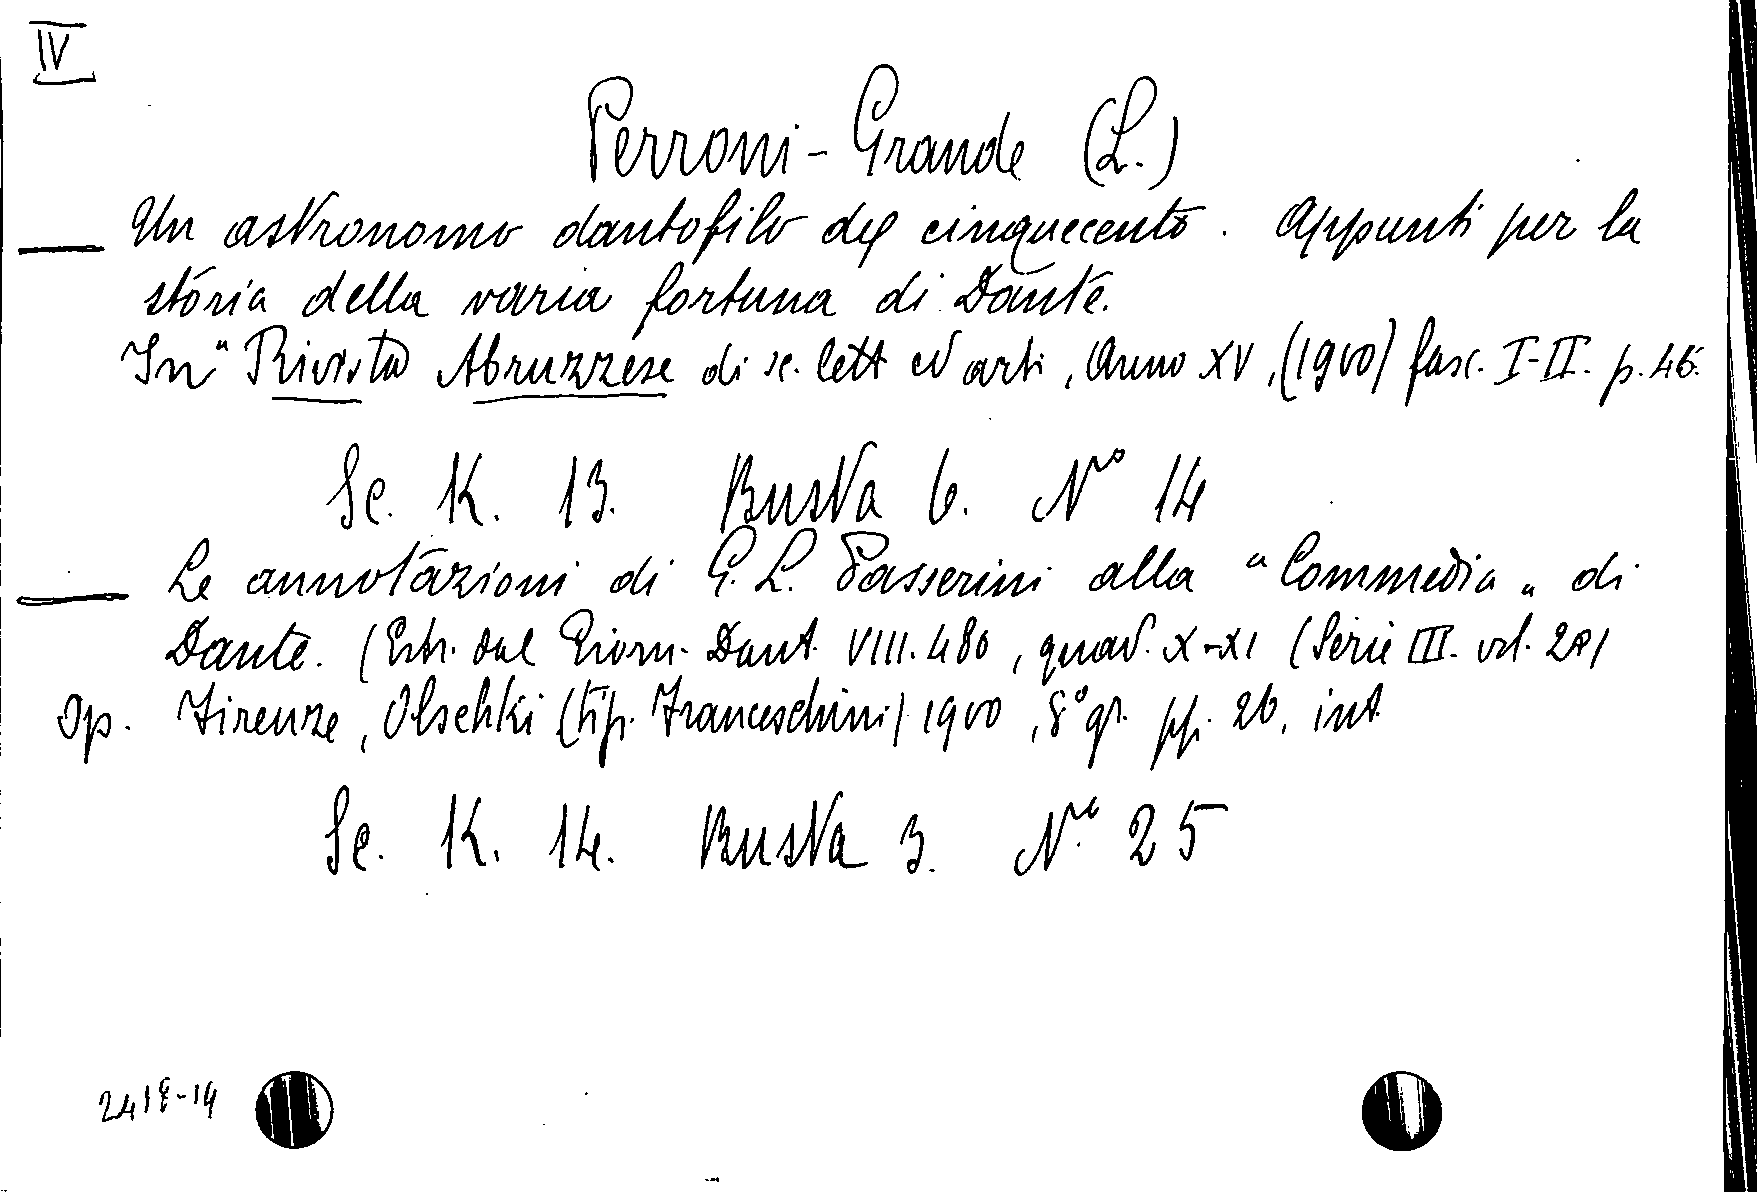 IV
Perroni-Grande (L.)
— Un astronomo dantofilo del cinquecento. Appunti per la
storia della varia fortuna di Dante.
In "Rivista Abruzzese di sc. lett ed arti, Anno XV, (1900) fasc. I-II. p. 46.
Sc. K. 13. Busta 6. Nº 14
— Le annotazioni di G. L. Passerini alla "Commedia" di
Dante. (Estr. dal Giorn. Dant. VIII. 480, quad. X-XI (Serie III. vol. )
Op. Firenze, Olschki (tip. Franceschini) 1900, 8º gr. pp. 26. int
Sc. K. 14. Busta 3. Nº 25
2418-19